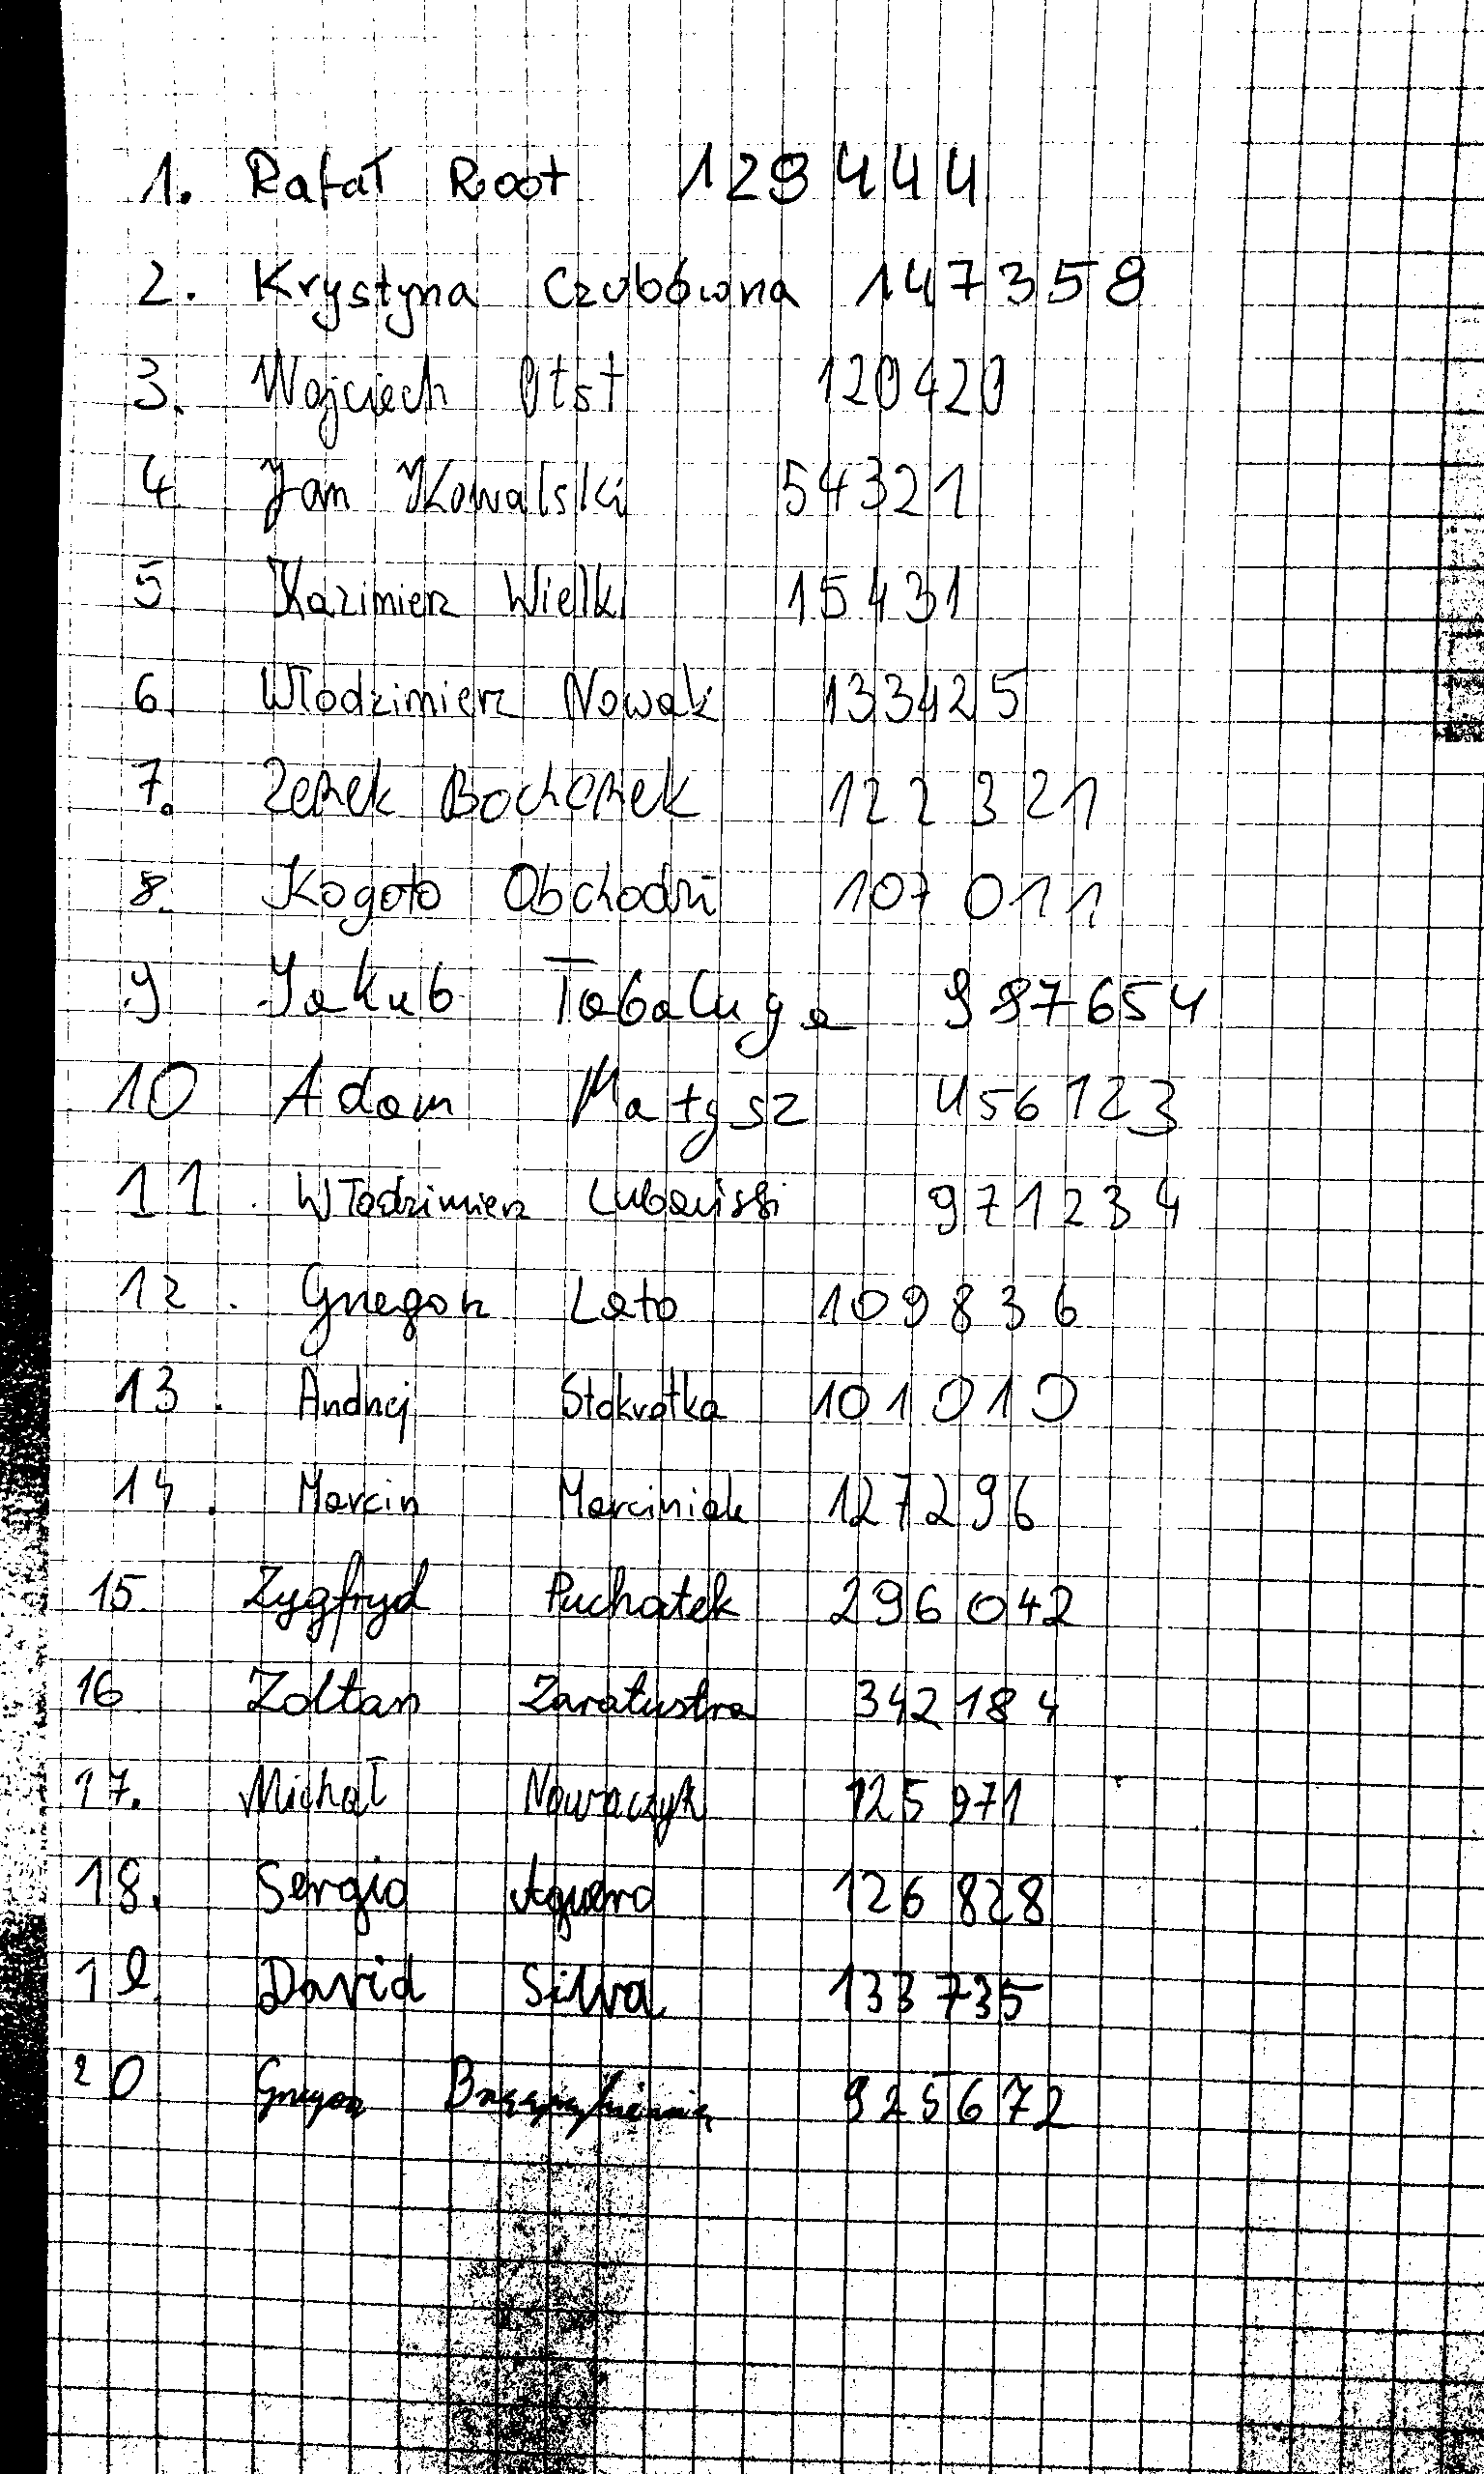 1. Rafał Root 129444
2. Krystyna Czubówna 147358
3. Wojciech Otst 120420
4 Jan Kowalski 54321
5 Kazimierz Wielki 15431
6. Włodzimierz Nowak 133425
7. Zenek Bochenek 122321
8. Kogoto Obchodzi 107011
9 Jakub Tabaluga 987654
10 Adam Małysz 456123
11. Włodzimierz 971234
12. Grzegorz Lato 109836
13. Andrzej Stokrotka 101010
14. Marcin Marciniak 127296
15. Zygfryd Puchatek 296042
16 Zoltan Zaratustra 342184
17. Michał Nowaczyk 125971
18. Sergio Aguero 126828
19. David Silva 133735
20 Grzegorz 925672